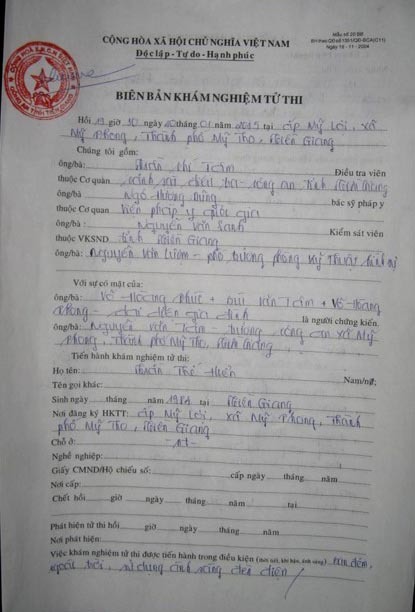 CỘNG HÒA XÃ HỘI CHỦ NGHĨA VIỆT NAM
Độc lập - Tự do - Hạnh phúc
Mẫu số 20 BB
BH theo QĐ số 1351/QĐ-BCA(C11)
Ngày 18 - 11 - 2004
BIÊN BẢN KHÁM NGHIỆM TỬ THI
Hồi 19 giờ 10 ngày 20 tháng 01 năm 2015 tại ấp Mỹ Lợi, xã
Mỹ Phong, Thành phố Mỹ Tho, Tiền Giang
Chúng tôi gồm:
ông/bà: Điều tra viên
thuộc Cơ quan cảnh sát điều tra - công an tỉnh Tiền Giang
ông/bà bác sỹ pháp y
thuộc Cơ quan Viện pháp y quốc gia
ông/bà: Nguyễn Văn Kiểm sát viên
thuộc VKSND tỉnh Tiền Giang
ông/bà: Nguyễn Văn - phó trưởng phòng kỹ thuật hình sự
Với sự có mặt của:
ông/bà: Võ Hoàng Phúc + Bùi Văn Tâm + Võ Hoàng
- đại diện gia đình là người chứng kiến.
ông/bà: Nguyễn Văn - trưởng công an xã Mỹ
Phong, Thành phố Mỹ Tho, Tiền Giang
Tiến hành khám nghiệm tử thi:
Họ tên: Thế Hiển Nam/nữ:
Tên gọi khác:
Sinh ngày tháng năm 1984 tại Tiền Giang
Nơi đăng ký HKTT: ấp Mỹ Lợi, xã Mỹ Phong, Thành
phố Mỹ Tho, Tiền Giang
Chỗ ở: -nt-
Nghề nghiệp:
Giấy CMND/Hộ chiếu số: cấp ngày tháng năm
Nơi cấp:
Chết hồi giờ ngày tháng năm tại
Phát hiện tử thi hồi giờ ngày tháng năm
Nơi phát hiện:
Việc khám nghiệm tử thi được tiến hành trong điều kiện (thời tiết, khí hậu, ánh sáng) ban đêm,
ngoài trời, sử dụng ánh sáng đèn điện